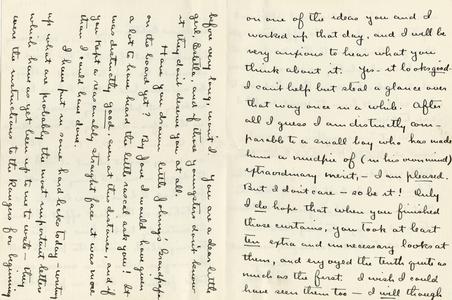 before very long, won't I. You are a dear little
girl, Estella, and if those youngsters don't know
it they don't deserve you at all.
Have you drawn little Johnny's Grandpapa
on the board yet? By Jove I would have given
a lot to have heard the little rascal ask you! It
was distinctly good, even at this distance, and if
you kept a reasonably straight face it was more
than I could have done.
I have put in some hard licks today - writing
up what are probably the most important letters
which have as yet been up to me to write - they
were the instructions to the Rangers for beginning
on one of the ideas you and I
worked up that day, and I will be
very anxious to hear what you
think about it. Yes - it looks good -
I can't help but steal a glance over
that way once in a while. After
all I guess I am distinctly com-
parable to a small boy who has made
him a mudpie of (in his own mind)
extraordinary merit, - I am pleased.
But I don't care - so be it! Only
I do hope that when you finished
those curtains, you took at least
ten extra and unnecessary looks at
them, and enjoyed the tenth quite as
much as the first. I wish I could
have seen them too - I will though